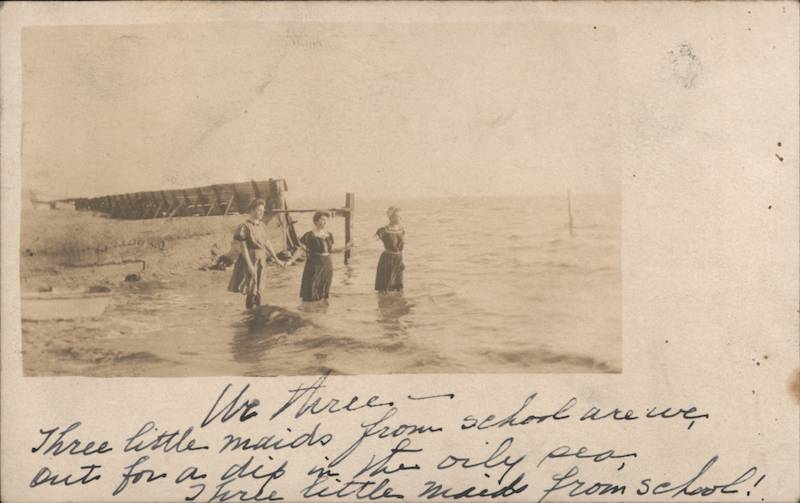 We Three —
Three little maids from school are we,
out for a dip in the oily sea,
Three little maids from school!